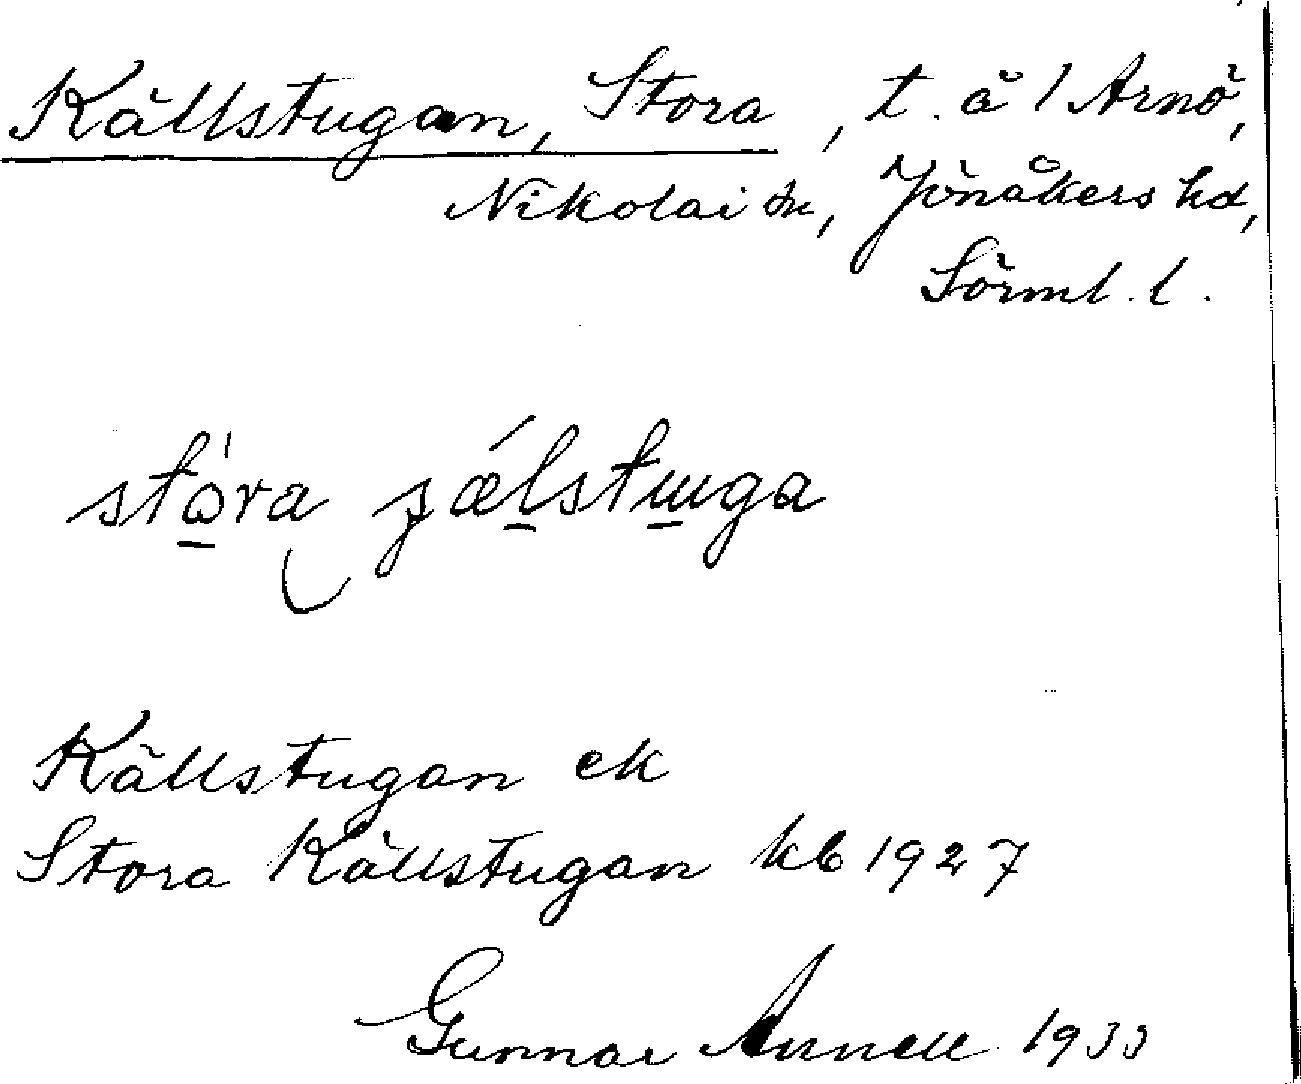 Källstugan, Stora, t. å 1 Arnö,
Nikolai sn, Jönåkers hd,
Sörml. l.
Källstugan ek
Stora Källstugan kb 1927
Gunnar Annell 1933